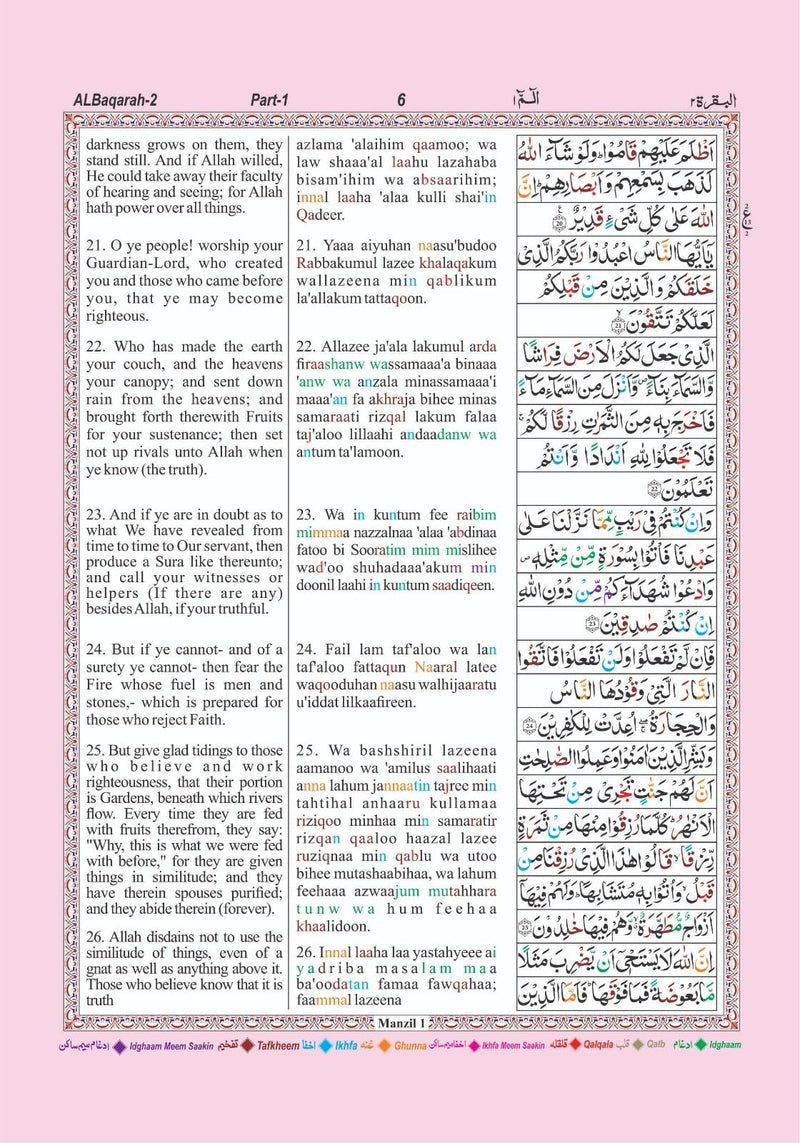 ALBaqarah-2 Part-1 6 الٓمّٓ ١ البقرة ٢
darkness grows on them, they
stand still. And if Allah willed,
He could take away their faculty
of hearing and seeing; for Allah
hath power over all things.
21. O ye people! worship your
Guardian-Lord, who created
you and those who came before
you, that ye may become
righteous.
22. Who has made the earth
your couch, and the heavens
your canopy; and sent down
rain from the heavens; and
brought forth therewith Fruits
for your sustenance; then set
not up rivals unto Allah when
ye know (the truth).
23. And if ye are in doubt as to
what We have revealed from
time to time to Our servant, then
produce a Sura like thereunto;
and call your witnesses or
helpers (If there are any)
besides Allah, if your truthful.
24. But if ye cannot- and of a
surety ye cannot- then fear the
Fire whose fuel is men and
stones,- which is prepared for
those who reject Faith.
25. But give glad tidings to those
who believe and work
righteousness, that their portion
is Gardens, beneath which rivers
flow. Every time they are fed
with fruits therefrom, they say:
"Why, this is what we were fed
with before," for they are given
things in similitude; and they
have therein spouses purified;
and they abide therein (forever).
26. Allah disdains not to use the
similitude of things, even of a
gnat as well as anything above it.
Those who believe know that it is
truth
azlama 'alaihim qaamoo; wa
law shaaa'al laahu lazahaba
bisam'ihim wa absaarihim;
innal laaha 'alaa kulli shai'in
Qadeer.
21. Yaaa aiyuhan naasu'budoo
Rabbakumul lazee khalaqakum
wallazeena min qablikum
la'allakum tattaqoon.
22. Allazee ja'ala lakumul arda
firaashanw wassamaaa'a binaaa
'anw wa anzala minassamaaa'i
maaa'an fa akhraja bihee minas
samaraati rizqal lakum falaa
taj'aloo lillaahi andaadanw wa
antum ta'lamoon.
23. Wa in kuntum fee raibim
mimmaa nazzalnaa 'alaa 'abdinaa
fatoo bi Sooratim mim mislihee
wad'oo shuhadaaa'akum min
doonil laahi in kuntum saadiqeen.
24. Fail lam taf'aloo wa lan
taf'aloo fattaqun Naaral latee
waqooduhan naasu walhijaaratu
u'iddat lilkaafireen.
25. Wa bashshiril lazeena
aamanoo wa 'amilus saalihaati
anna lahum jannaatin tajree min
tahtihal anhaaru kullamaa
riziqoo minhaa min samaratir
rizqan qaaloo haazal lazee
ruziqnaa min qablu wa utoo
bihee mutashaabihaa, wa lahum
feehaaa azwaajum mutahhara
tunw wa hum feehaa
khaalidoon.
26. Innal laaha laa yastahyeee ai
yadriba masalam maa
ba'oodatan famaa fawqahaa;
faammal lazeena
اَظْلَمَ عَلَيْهِمْ قَامُوْا ؕ وَلَوْ شَآءَ اللّٰهُ
لَذَهَبَ بِسَمْعِهِمْ وَاَبْصَارِهِمْ ؕ اِنَّ
اللّٰهَ عَلٰى كُلِّ شَىْءٍ قَدِيْرٌ 20
يٰۤاَيُّهَا النَّاسُ اعْبُدُوْا رَبَّكُمُ الَّذِىْ
خَلَقَكُمْ وَالَّذِيْنَ مِنْ قَبْلِكُمْ
لَعَلَّكُمْ تَتَّقُوْنَ 21
الَّذِىْ جَعَلَ لَكُمُ الْاَرْضَ فِرَاشًا
وَّالسَّمَآءَ بِنَآءً وَّاَنْزَلَ مِنَ السَّمَآءِ مَآءً
فَاَخْرَجَ بِهٖ مِنَ الثَّمَرٰتِ رِزْقًا لَّكُمْ ۚ
فَلَا تَجْعَلُوْا لِلّٰهِ اَنْدَادًا وَّاَنْتُمْ
تَعْلَمُوْنَ 22
وَاِنْ كُنْتُمْ فِىْ رَيْبٍ مِّمَّا نَزَّلْنَا عَلٰى
عَبْدِنَا فَاْتُوْا بِسُوْرَةٍ مِّنْ مِّثْلِهٖ ص
وَادْعُوْا شُهَدَآءَكُمْ مِّنْ دُوْنِ اللّٰهِ
اِنْ كُنْتُمْ صٰدِقِيْنَ 23
فَاِنْ لَّمْ تَفْعَلُوْا وَلَنْ تَفْعَلُوْا فَاتَّقُوا
النَّارَ الَّتِىْ وَقُوْدُهَا النَّاسُ
وَالْحِجَارَةُ ۖۚ اُعِدَّتْ لِلْكٰفِرِيْنَ 24
وَبَشِّرِ الَّذِيْنَ اٰمَنُوْا وَعَمِلُوا الصّٰلِحٰتِ
اَنَّ لَهُمْ جَنّٰتٍ تَجْرِىْ مِنْ تَحْتِهَا
الْاَنْهٰرُ ؕ كُلَّمَا رُزِقُوْا مِنْهَا مِنْ ثَمَرَةٍ
رِّزْقًا ۙ قَالُوْا هٰذَا الَّذِىْ رُزِقْنَا مِنْ
قَبْلُ ۙ وَاُتُوْا بِهٖ مُتَشَابِهًا ؕ وَلَهُمْ فِيْهَاۤ
اَزْوَاجٌ مُّطَهَّرَةٌ ۙ وَّهُمْ فِيْهَا خٰلِدُوْنَ 25
اِنَّ اللّٰهَ لَا يَسْتَحْىٖۤ اَنْ يَّضْرِبَ مَثَلًا
مَّا بَعُوْضَةً فَمَا فَوْقَهَا ؕ فَاَمَّا الَّذِيْنَ
Manzil 1
ادغام میم ساکن Idghaam Meem Saakin تفخیم Tafkheem اخفا Ikhfa غنه Ghunna اخفا میم ساکن Ikhfa Meem Saakin قلقله Qalqala قلب Qalb ادغام Idghaam